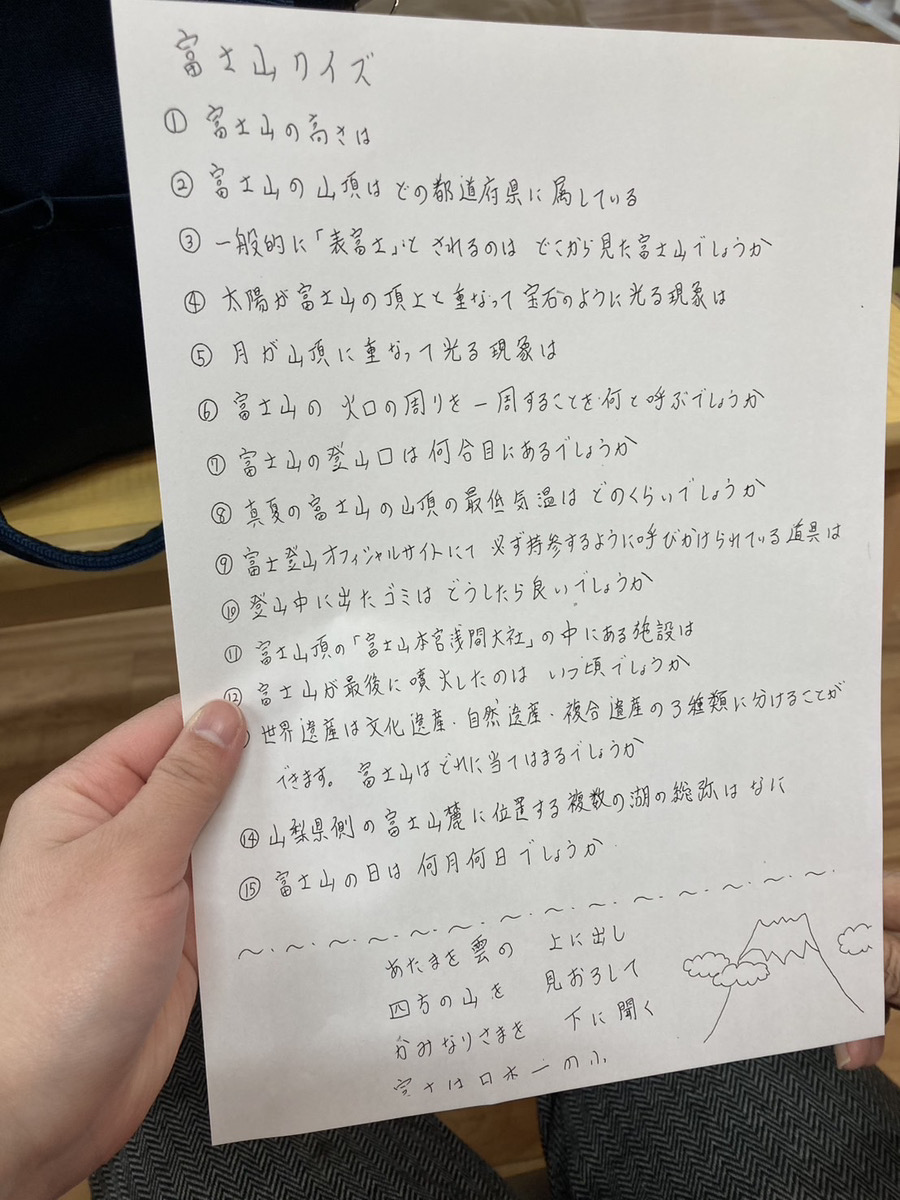 富士山クイズ
① 富士山の高さは
② 富士山の山頂はどの都道府県に属している
③ 一般的に「表富士」とされるのは どこから見た富士山でしょうか
④ 太陽が富士山の頂上と重なって宝石のように光る現象は
⑤ 月が山頂に重なって光る現象は
⑥ 富士山の 火口の周りを一周することを何と呼ぶでしょうか
⑦ 富士山の登山口は何合目にあるでしょうか
⑧ 真夏の富士山の山頂の最低気温は どのくらいでしょうか
⑨ 富士登山オフィシャルサイトにて 必ず持参するように呼びかけられている道具は
⑩ 登山中に出たゴミは どうしたら良いでしょうか
⑪ 富士山頂の「富士山本宮浅間大社」の中にある施設は
⑫ 富士山が最後に噴火したのは いつ頃でしょうか
世界遺産は文化遺産・自然遺産・複合遺産の3種類に分けることが
できます。 富士山はどれに当てはまるでしょうか
⑭ 山梨県側の富士山麓に位置する複数の湖の総称はなに
⑮ 富士山の日は 何月何日でしょうか
あたまを雲の 上に出し
四方の山を 見おろして
かみなりさまを 下に聞く
富士は日本一の山